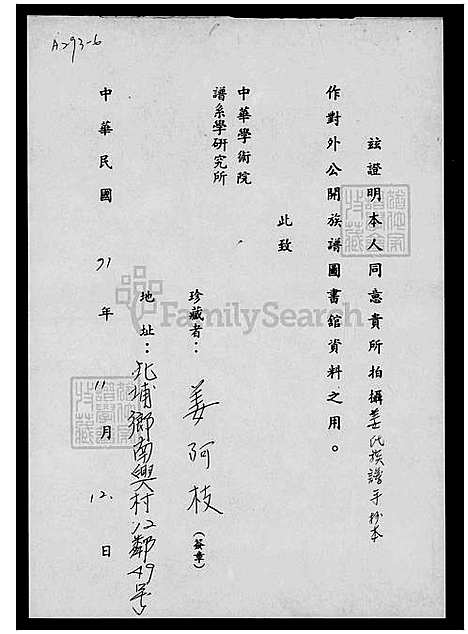 A293-6
茲證明本人同意貴所拍攝姜氏族譜手抄本
作對外公開族譜圖書館資料之用。
此致
中華學術院
譜系學研究所
珍藏者：姜阿枝（簽章）
地址：北埔鄉南興村12鄰49号
中華民國71年11月12.日
FamilySearch